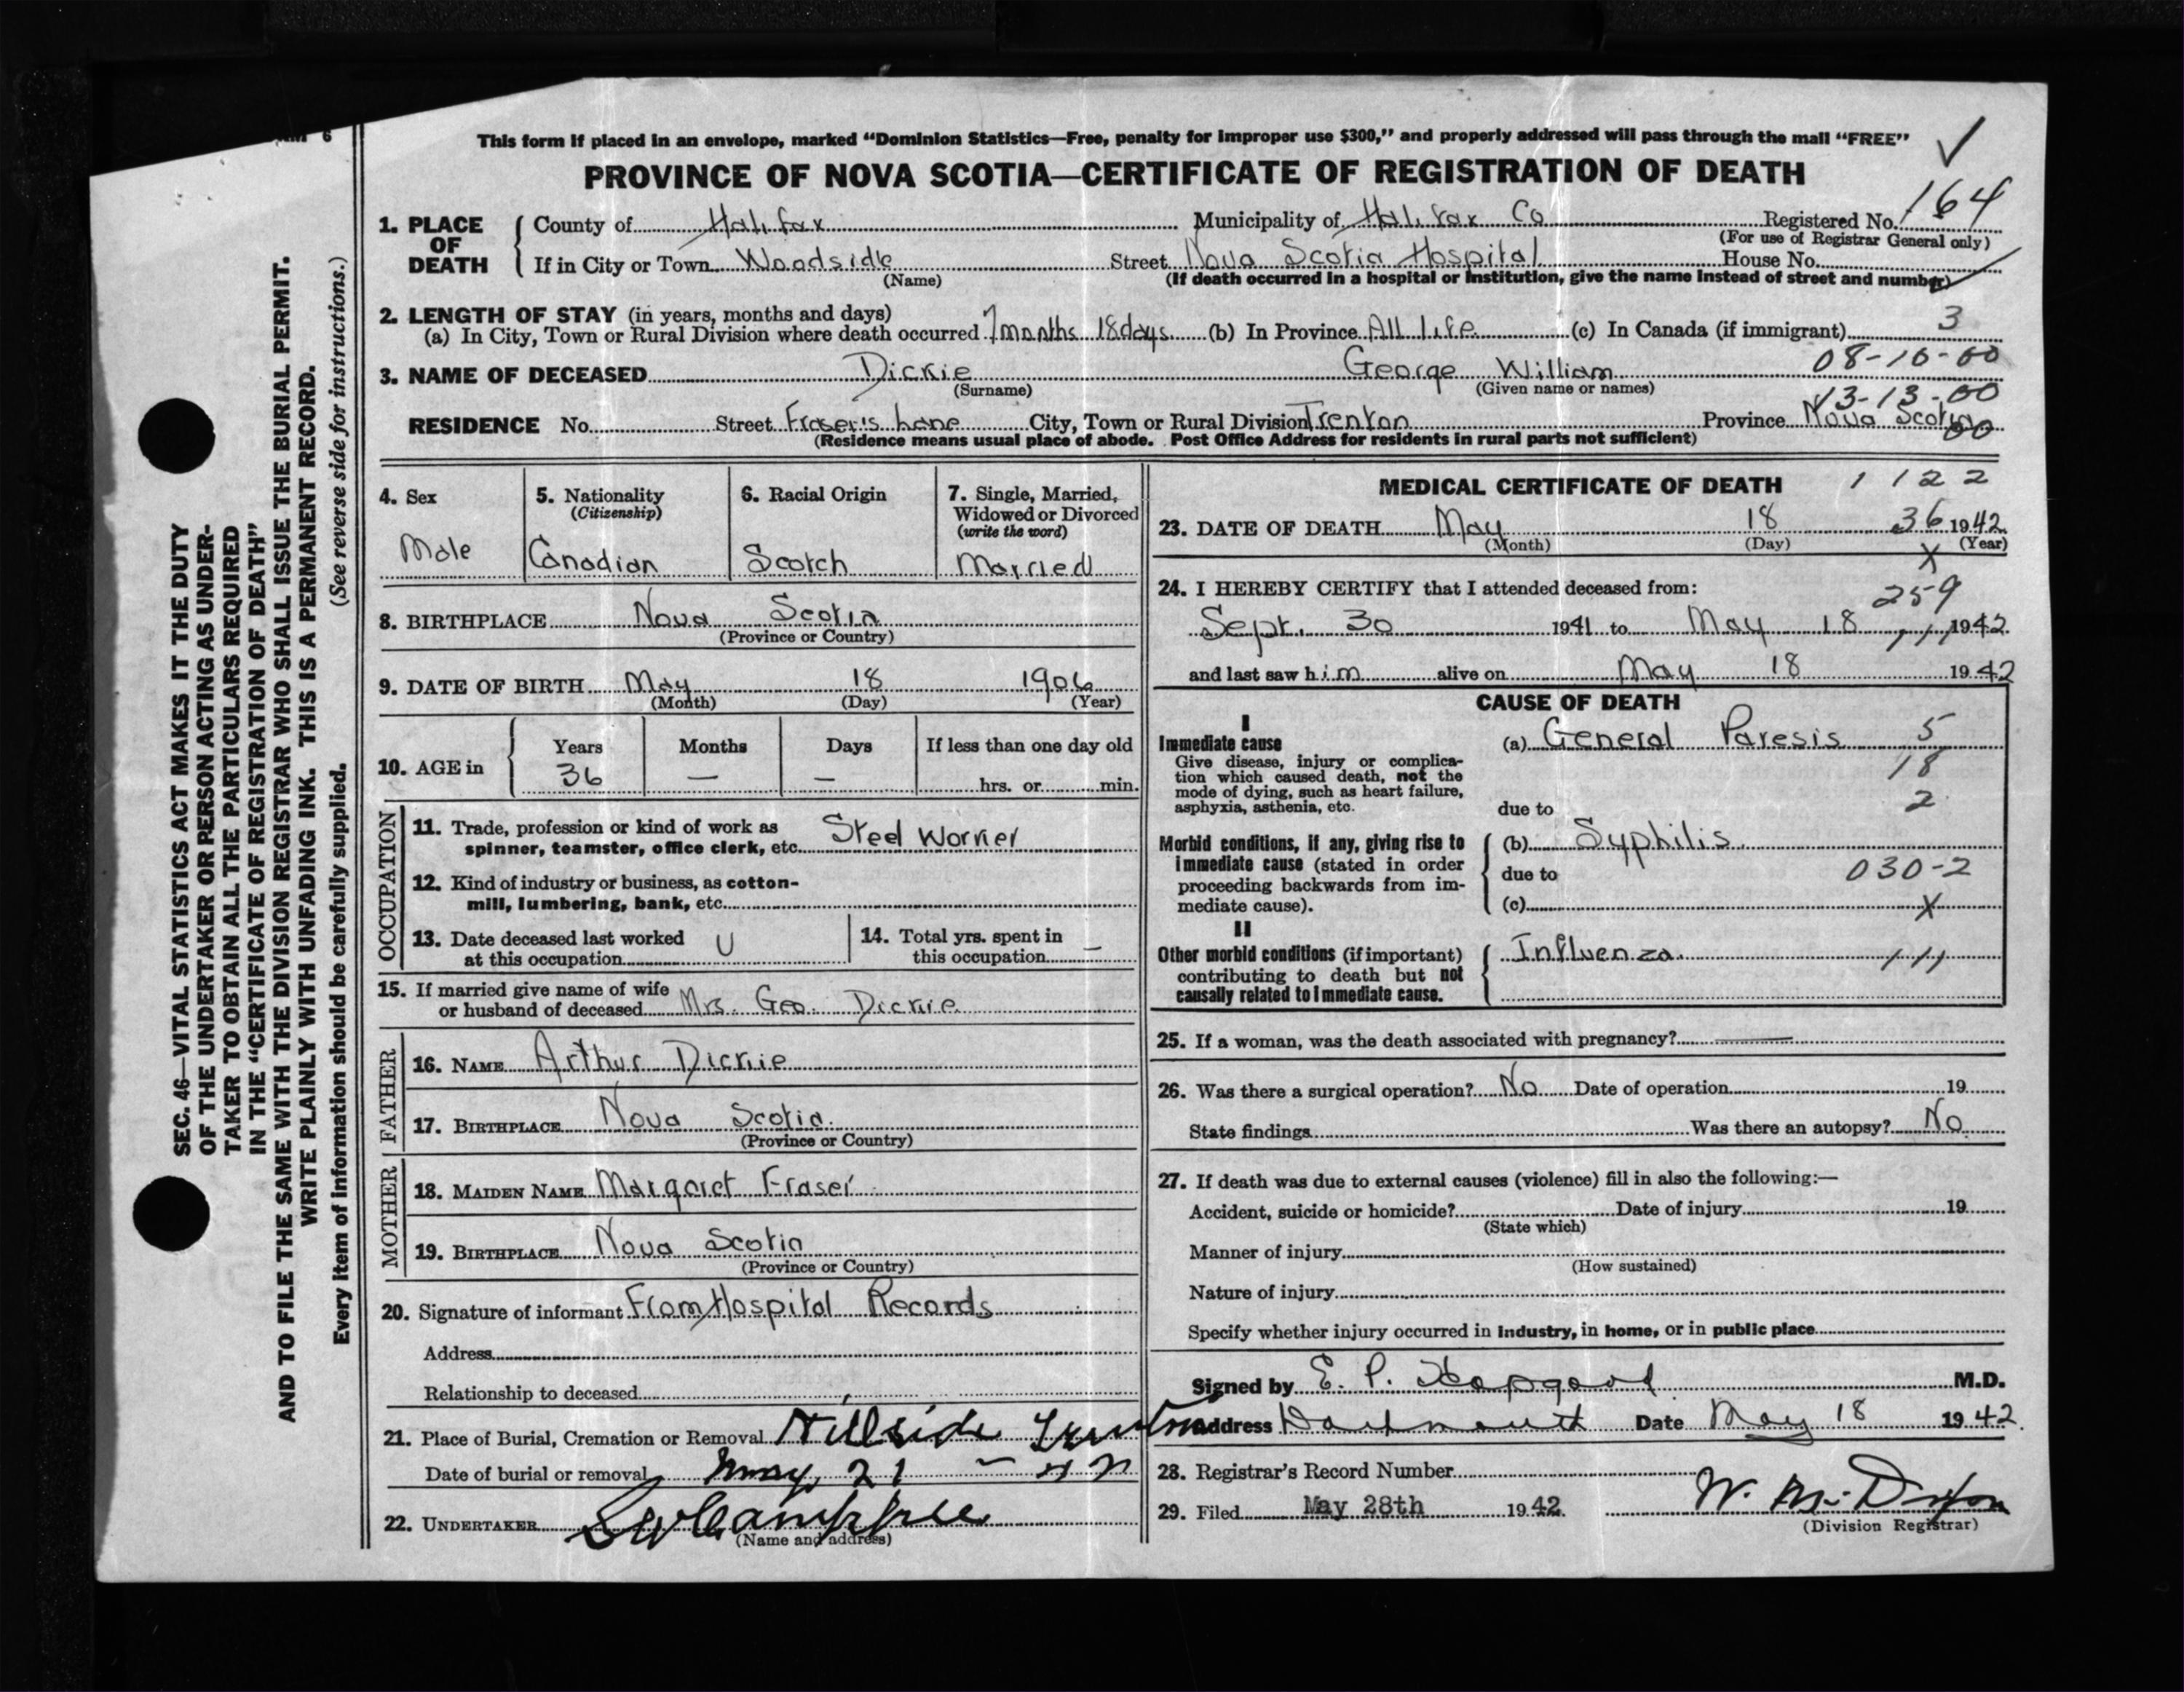 This form if placed in an envelope, marked “Dominion Statistics—Free, penalty for improper use $300,” and properly addressed will pass through the mail “FREE”
PROVINCE OF NOVA SCOTIA—CERTIFICATE OF REGISTRATION OF DEATH
1. PLACE OF DEATH County of Halifax Municipality of Halifax Co Registered No. 164
(For use of Registrar General only)
If in City or Town Woodside Street Nova Scotia Hospital House No.
(Name) (If death occurred in a hospital or institution, give the name instead of street and number)
2. LENGTH OF STAY (in years, months and days)
(a) In City, Town or Rural Division where death occurred 7 months 18 days (b) In Province All Life (c) In Canada (if immigrant) 3
08-10-00
3. NAME OF DECEASED Dickie George William
(Surname) (Given name or names)
13-13-00
RESIDENCE No. Street Fraser's Lane City, Town or Rural Division Trenton Province Nova Scotia 00
(Residence means usual place of abode. Post Office Address for residents in rural parts not sufficient)
4. Sex Male
5. Nationality (Citizenship) Canadian
6. Racial Origin Scotch
7. Single, Married, Widowed or Divorced (write the word) Married
8. BIRTHPLACE Nova Scotia
(Province or Country)
9. DATE OF BIRTH May 18 1906
(Month) (Day) (Year)
10. AGE in Years 36 Months — Days — If less than one day old hrs. or min.
OCCUPATION
11. Trade, profession or kind of work as
spinner, teamster, office clerk, etc. Steel Worker
12. Kind of industry or business, as cotton-
mill, lumbering, bank, etc.
13. Date deceased last worked
at this occupation U
14. Total yrs. spent in
this occupation —
15. If married give name of wife
or husband of deceased Mrs. Geo. Dickie
FATHER
16. NAME Arthur Dickie
17. BIRTHPLACE Nova Scotia.
(Province or Country)
MOTHER
18. MAIDEN NAME Margaret Fraser
19. BIRTHPLACE Nova Scotia
(Province or Country)
20. Signature of informant From Hospital Records
Address
Relationship to deceased
21. Place of Burial, Cremation or Removal Hillside Trenton
Date of burial or removal May 21 - 42
22. UNDERTAKER
(Name and address)
MEDICAL CERTIFICATE OF DEATH 1 1 2 2
23. DATE OF DEATH May 18 36 1942
(Month) (Day) (Year)
X
24. I HEREBY CERTIFY that I attended deceased from:
259
Sept. 30 1941 to May 18 111 1942
and last saw him alive on May 18 1942
CAUSE OF DEATH
I
Immediate cause
Give disease, injury or complica-
tion which caused death, not the
mode of dying, such as heart failure,
asphyxia, asthenia, etc.
(a) General Paresis 5
18
due to 2
Morbid conditions, if any, giving rise to
immediate cause (stated in order
proceeding backwards from im-
mediate cause).
(b) Syphilis
due to 030-2
(c) X
II
Other morbid conditions (if important)
contributing to death but not
causally related to immediate cause.
Influenza. 111
25. If a woman, was the death associated with pregnancy? —
26. Was there a surgical operation? No Date of operation 19
State findings Was there an autopsy? No
27. If death was due to external causes (violence) fill in also the following:—
Accident, suicide or homicide? Date of injury 19
(State which)
Manner of injury
(How sustained)
Nature of injury
Specify whether injury occurred in industry, in home, or in public place
Signed by E. P. Hopgood M.D.
Address Dartmouth Date May 18 1942.
28. Registrar's Record Number
29. Filed May 28th 1942
W. M. Dixon
(Division Registrar)
SEC. 46—VITAL STATISTICS ACT MAKES IT THE DUTY
OF THE UNDERTAKER OR PERSON ACTING AS UNDER-
TAKER TO OBTAIN ALL THE PARTICULARS REQUIRED
IN THE “CERTIFICATE OF REGISTRATION OF DEATH”
AND TO FILE THE SAME WITH THE DIVISION REGISTRAR WHO SHALL ISSUE THE BURIAL PERMIT.
WRITE PLAINLY WITH UNFADING INK. THIS IS A PERMANENT RECORD.
Every item of information should be carefully supplied. (See reverse side for instructions.)
6